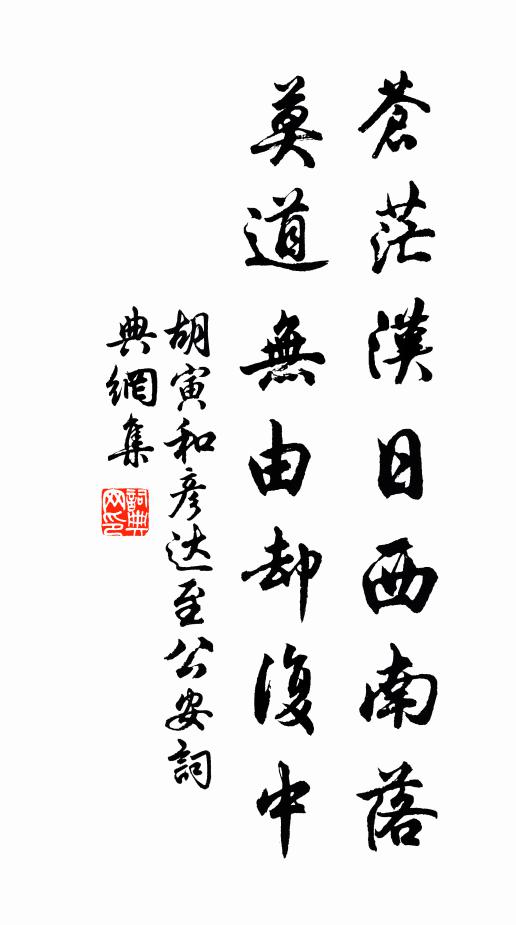 蒼茫漢日西南落
莫道無由却復中
胡寅和彥达至公安詞
典網集
詞典
网印